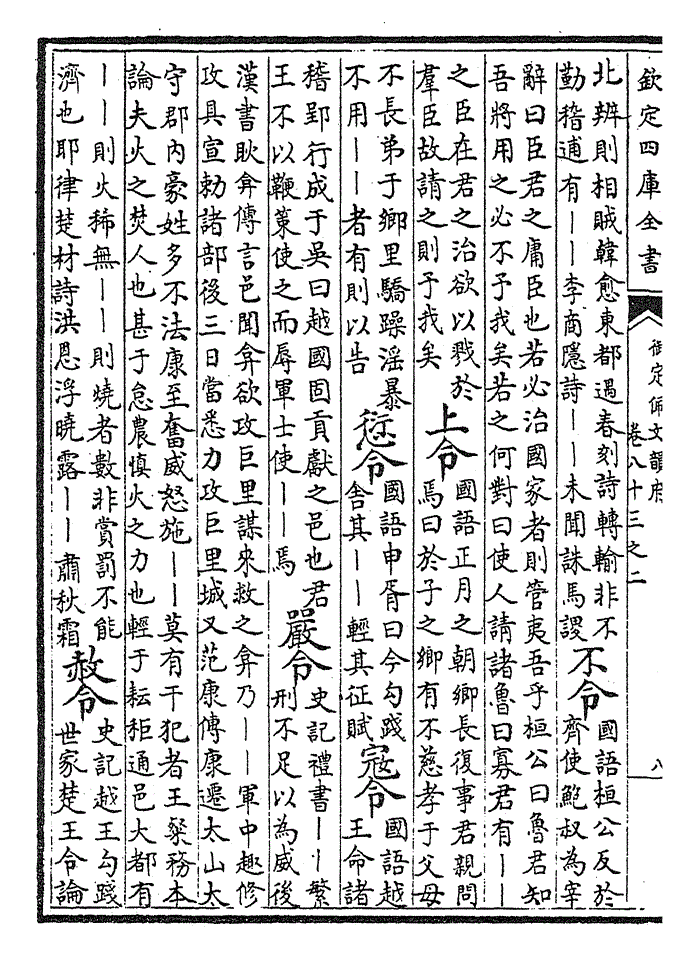 欽定四庫全書
御定佩文韻府
卷八十三之二
八
北辨則相賊韓愈東都遇春刻詩轉輸非不
勤稽逋有丨丨李商隱詩丨丨未聞誅馬謖
不令
國語桓公反於
齊使鮑叔為宰
辭曰臣君之庸臣也若必治國家者則管夷吾乎桓公曰魯君知
吾將用之必不予我矣若之何對曰使人請諸魯曰寡君有丨丨
之臣在君之治欲以戮於
羣臣故請之則予我矣
上令
國語正月之朝鄉長復事君親問
焉曰於子之鄉有不慈孝于父母
不長弟于鄉里驕躁淫暴
不用丨丨者有則以告
愆令
國語申胥曰今勾踐
舍其丨丨輕其征賦
寇令
國語越
王命諸
稽郢行成于吳曰越國固貢獻之邑也君
王不以鞭箠使之而辱軍士使丨丨焉
嚴令
史記禮書丨丨繁
刑不足以為威後
漢書耿弇傳言邑聞弇欲攻巨里謀來救之弇乃丨丨軍中趣修
攻具宣勅諸部後三日當悉力攻巨里城又范康傳康遷太山太
守郡內豪姓多不法康至奮威怒施丨丨莫有干犯者王粲務本
論夫火之焚人也甚于怠農慎火之力也輕于耘秬通邑大都有
丨丨則火稀無丨丨則燒者數非賞罰不能
濟也耶律楚材詩洪恩浮曉露丨丨肅秋霜
赦令
史記越王勾踐
世家楚王令論